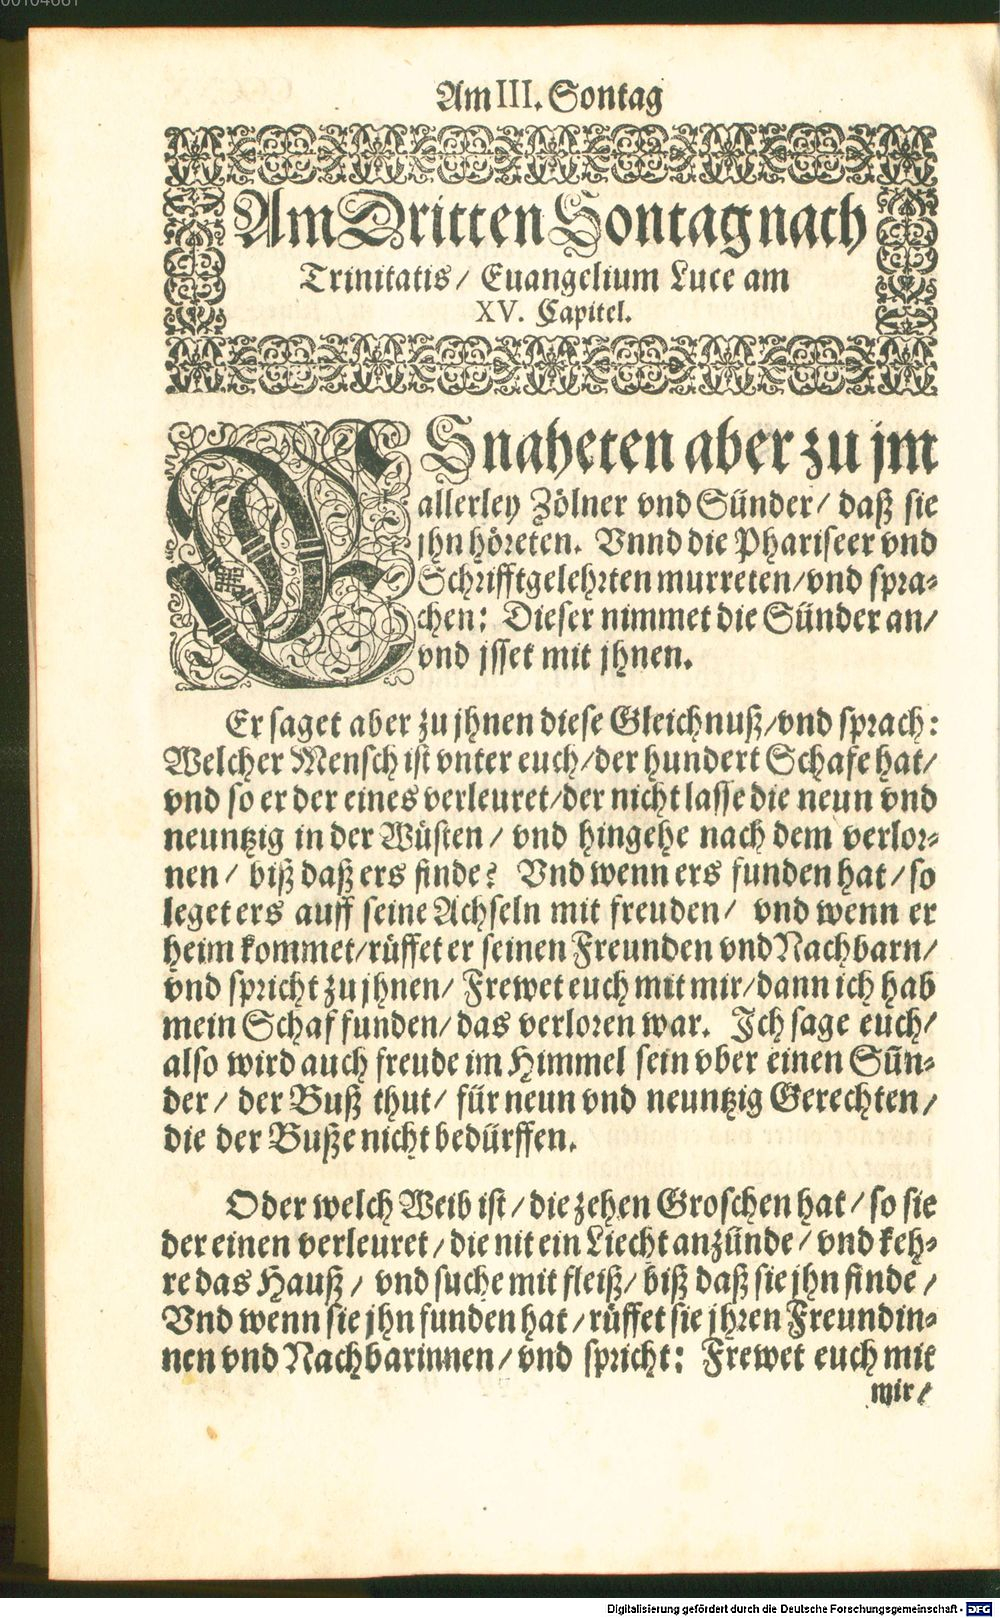 00104681
Am III. Sontag
Am Dritten Sontag nach
Trinitatis / Euangelium Luce am
XV. Capitel.
ES naheten aber zu jm
allerley Zölner vnd Sünder / daß sie
jhn höreten. Vnnd die Phariseer vnd
Schrifftgelehrten murreten / vnd spra-
chen: Dieser nimmet die Sünder an /
vnd jsset mit jhnen.
Er saget aber zu jhnen diese Gleichnuß / vnd sprach:
Welcher Mensch ist vnter euch / der hundert Schafe hat /
vnd so er der eines verleuret / der nicht lasse die neun vnd
neuntzig in der Wüsten / vnd hingehe nach dem verlor-
nen / biß daß ers finde? Vnd wenn ers funden hat / so
leget ers auff seine Achseln mit freuden / vnd wenn er
heim kommet / rüffet er seinen Freunden vnd Nachbarn /
vnd spricht zu jhnen / Frewet euch mit mir / dann ich hab
mein Schaf funden / das verloren war. Ich sage euch /
also wird auch freude im Himmel sein vber einen Sün-
der / der Buß thut / für neun vnd neuntzig Gerechten /
die der Buße nicht bedürffen.
Oder welch Weib ist / die zehen Groschen hat / so sie
der einen verleuret / die nit ein Liecht anzünde / vnd keh-
re das Hauß / vnd suche mit fleiß / biß daß sie jhn finde /
Vnd wenn sie jhn funden hat / rüffet sie jhren Freundin-
nen vnd Nachbarinnen / vnd spricht: Frewet euch mit
mir /
Digitalisierung gefördert durch die Deutsche Forschungsgemeinschaft - DFG